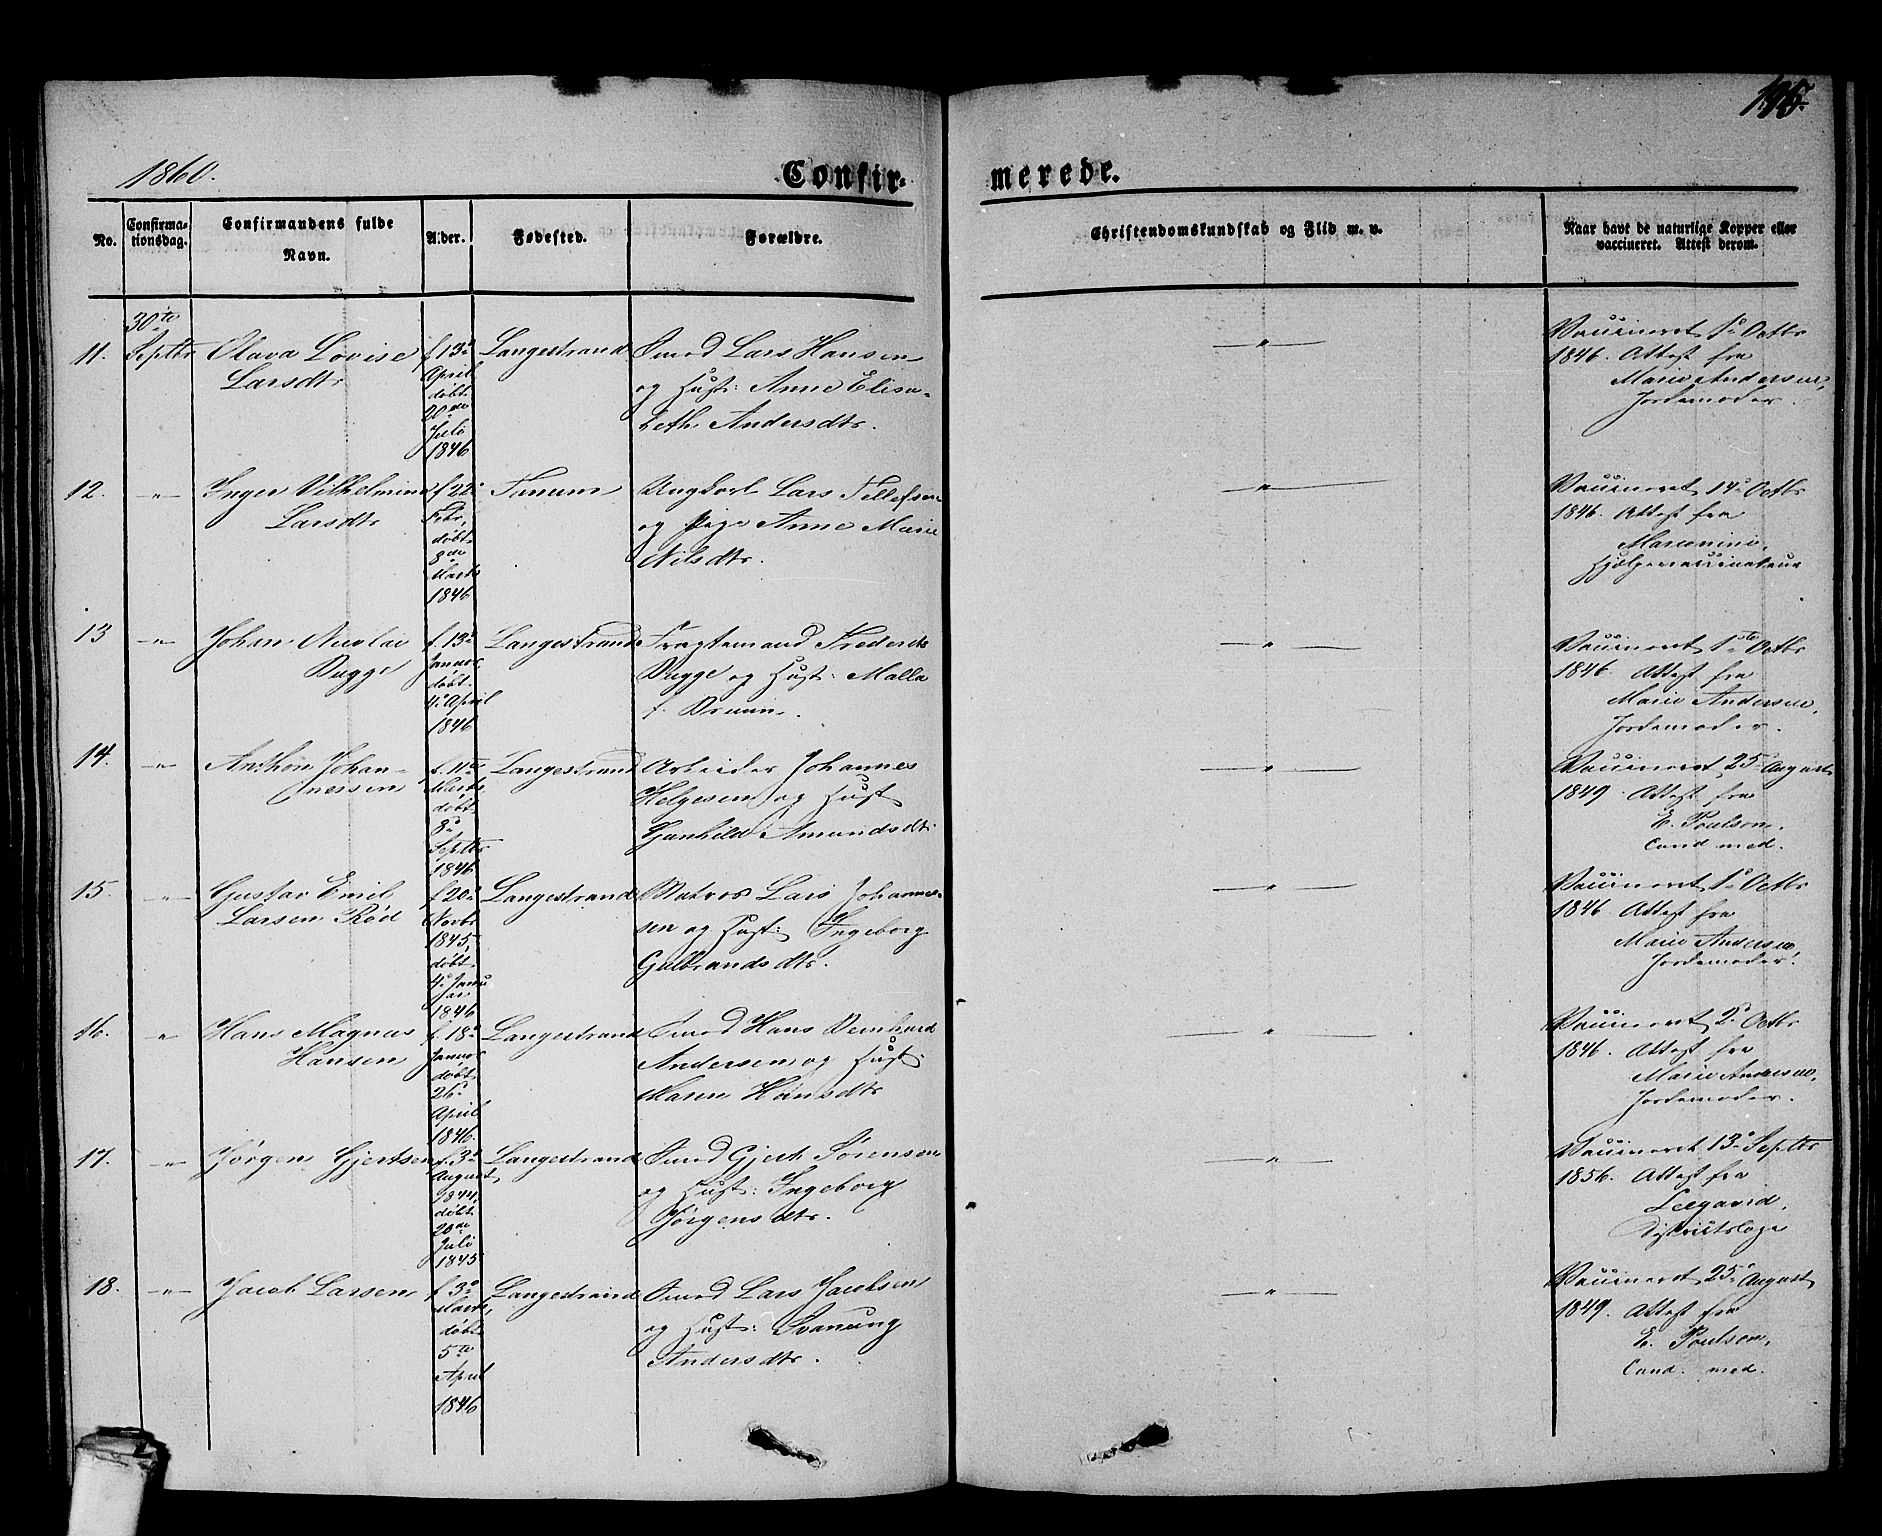 195.
1860.
Confir-
merede.
No.
Confirma-
tionsdag.
Confirmandens fulde
Navn.
Alder.
Fødested.
Forældre.
Christendomskundskab og Flid m. v.
Naar havt de naturlige Kopper eller
vaccineret. Attest derom.
11.
30te
Septbr
Olava Lovise
Larsdtr
f. 13de
April
døbt
20de
Juli
1846
Langestrand
Smed Lars Hansen
og Hust: Anne Elisa-
beth Andersdtr.
— " —
Vaccineret 1e Octbr
1846. Attest fra
Marie Andersen,
Jordemoder.
12.
— " —
Inger Vilhelmine
Larsdtr
f 22e
Febr,
døbt
8de
Marts
1846
Tanum
Ungkarl Lars Tellefsen
og Pige Anne Marie
Nilsdtr.
— " —
Vaccineret 14e Octbr
1846. Attest fra
Hjelpevaccinateur
13
— " —
Johan Nicolai
Bugge
f. 13de
Januar,
døbt
4e April
1846
Langestrand
Fragtemand Frederik
Bugge og Hust: Malla
f. Bruun.
— " —
Vaccineret 1te Octbr
1846. Attest fra
Marie Andersen,
Jordemoder.
14.
— " —
Anthon Johan-
nessen
f. 11te
Marts
døbt
8de
Septbr
1846
Langestrand
Arbeider Johannes
Helgesen og Hust
Gunhild Amundsdtr
— " —
Vaccineret 25e August
1849. Attest fra
E. Poulson.
Cand med.
15.
— " —
Gustav Emil
Larsen Rød
f 20de
Novbr
1845,
døbt
4e Janu
ar
1846
Langestrand
Matros Lars Johannes-
sen og Hust: Ingeborg
Gulbrandsdtr.
— " —
Vaccineret 1e Octbr
1846 Attest fra
Marie Andersen,
Jordemoder.
16.
"
Hans Magnus
Hansen
f. 18de
Januar,
døbt
26e
April
1846.
Langestrand
Smed Hans Bernhard
Andersen og Hust:
Maren Hansdtr
— " —
Vaccineret 2e Octbr
1846. Attest fra
Marie Andersen,
Jordemoder.
17.
— " —
Jørgen Gjertsen
f. 3de
August
1844,
døbt
20de
Juli
1845
Langestrand
Smed Gjert Sørensen
og Hust: Ingeborg
Jørgensdtr.
— " —
Vaccineret 13e Septbr
1856. Attest fra
Leegaard,
Districtslæge
18.
— " —
Jacob Larsen
f 3de
Marts,
døbt
5te
April
1846
Langestrand
Smed Lars Jacobsen
og Hust: Svanung
Andersdtr.
— " —
Vaccineret 25e August
1849. Attest fra
E. Poulson,
Cand. med.